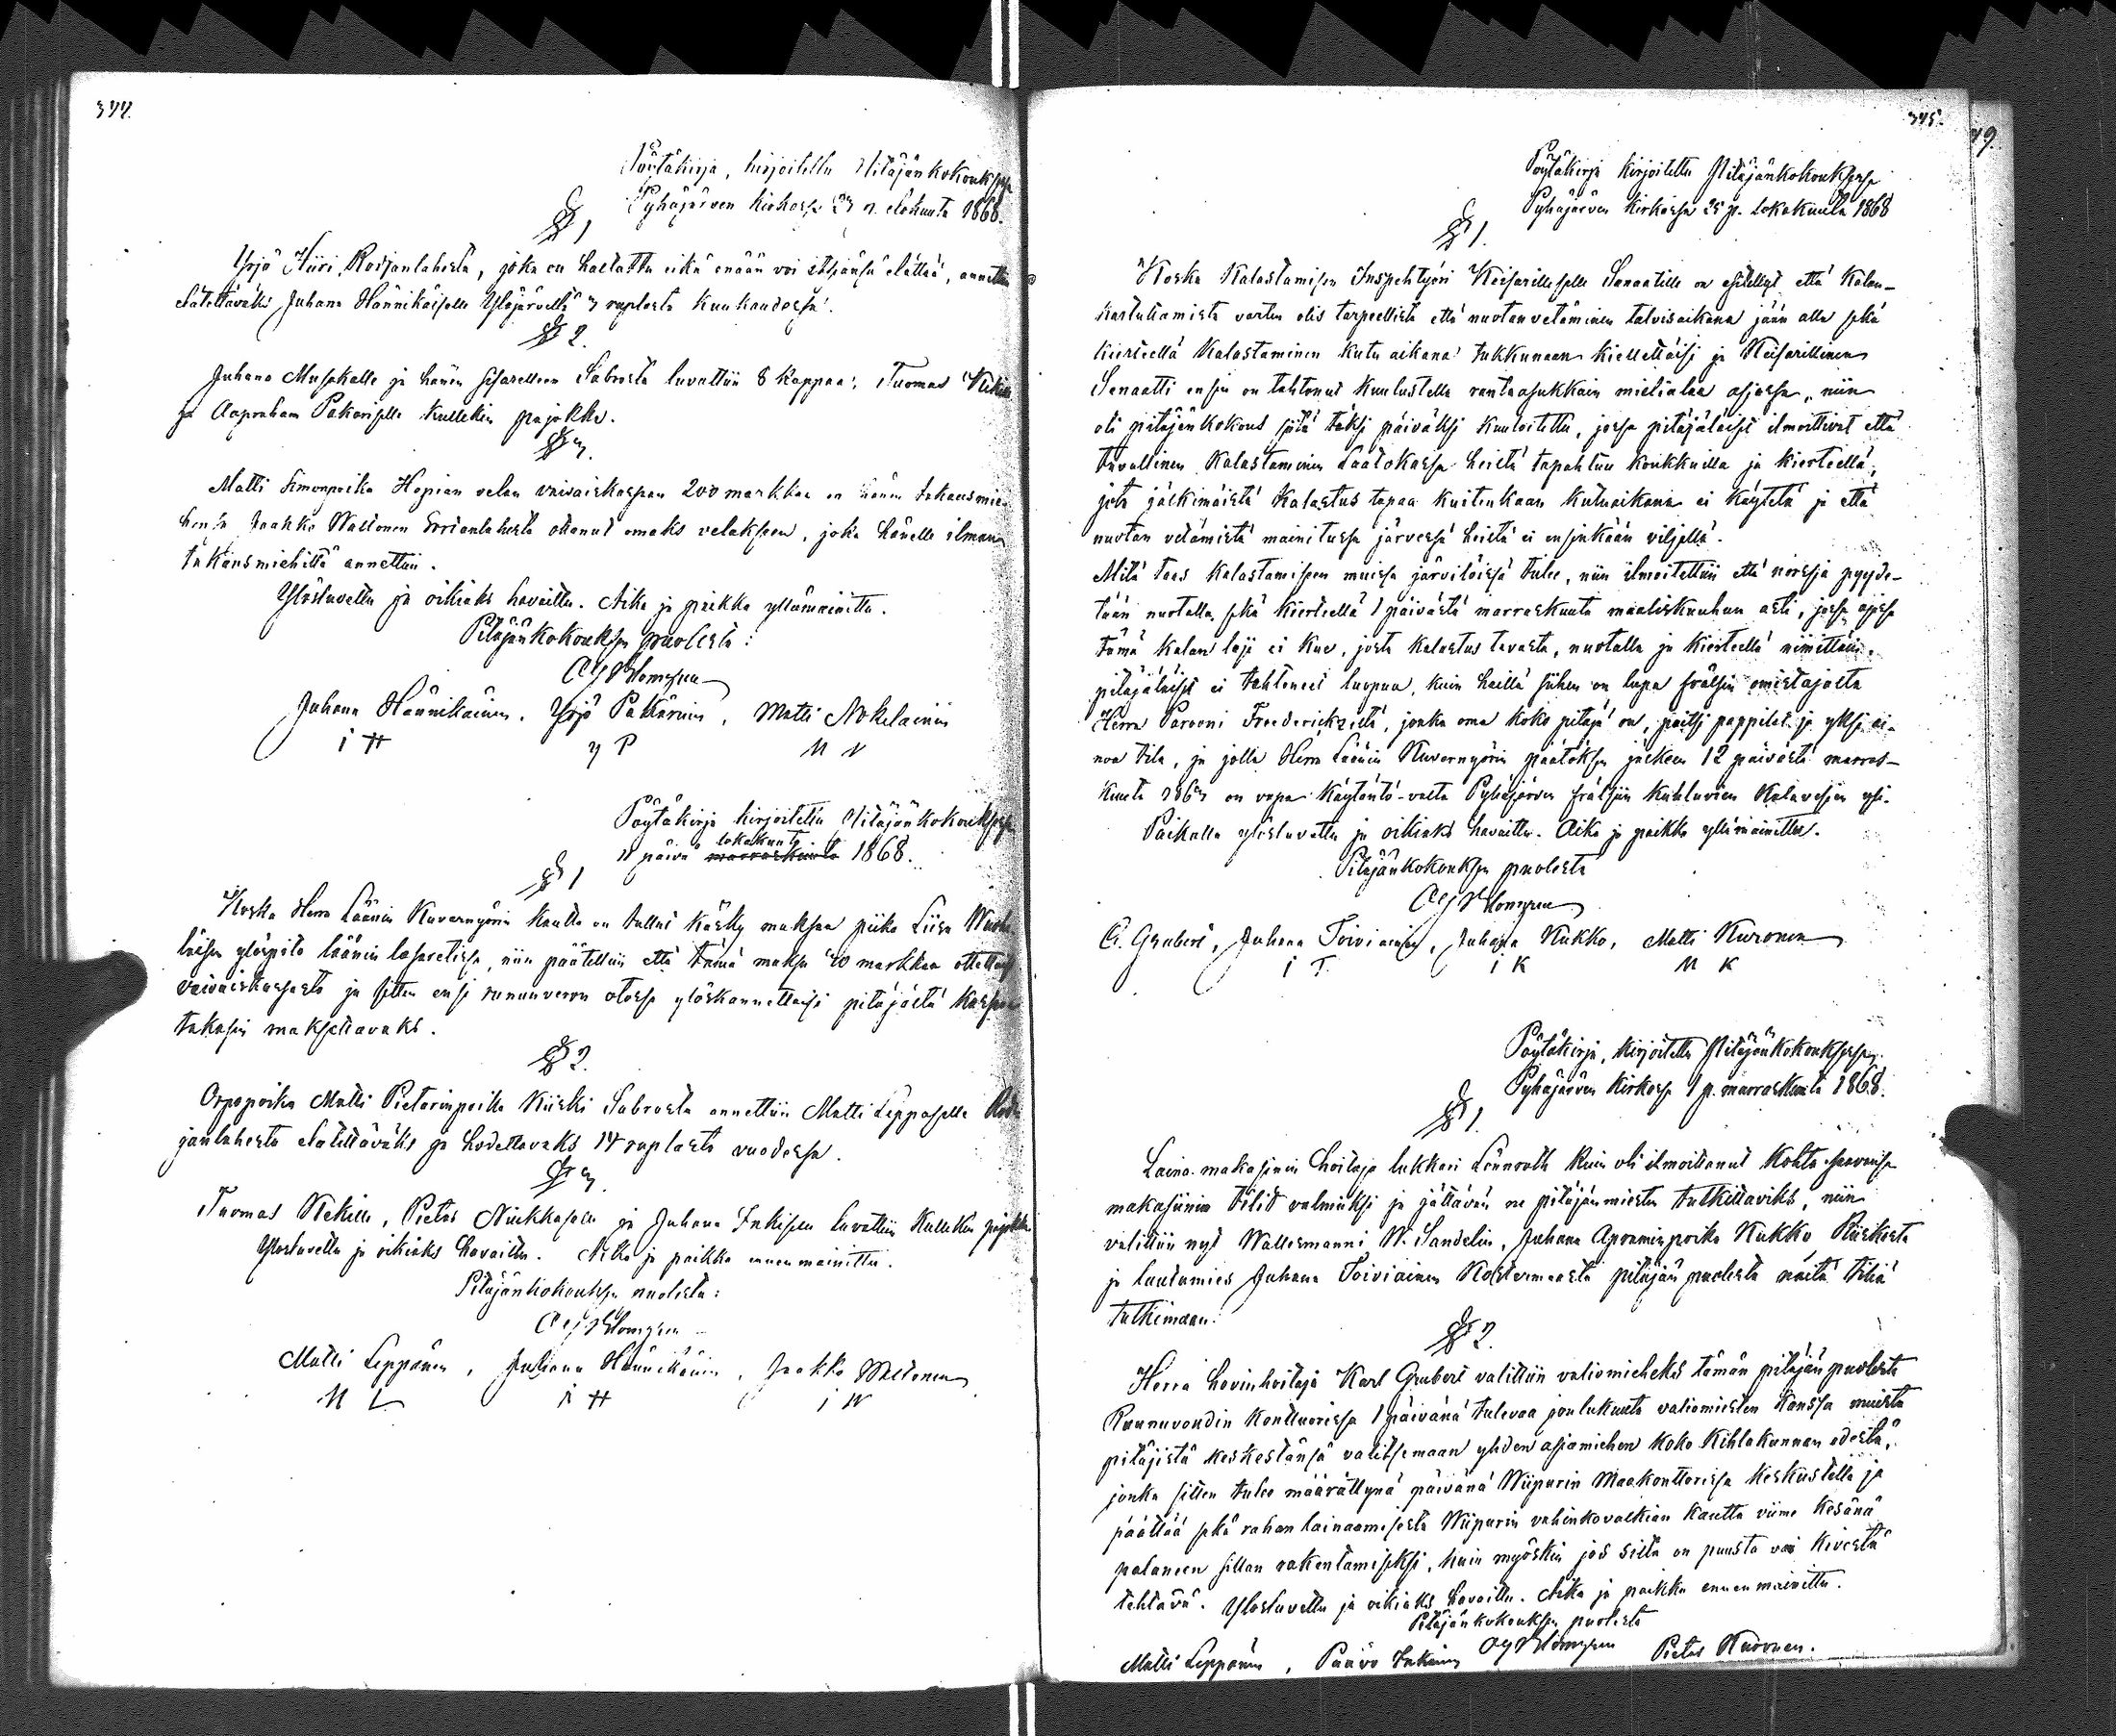 344.
Pöytäkirja, kirjoitettu Pitäjänkokouksessa
Pyhäjärven kirkossa 23 p. elokuuta 1868.
§ 1
Yrjö Hiiri Rosjanlahesta, joka on halvattu eikä enään voi itsiänsä elättää, annettiin
elätettäväks Juhana Hännikäiselle Yläjärvellä 3 ruplasta kuukaudessa.
§ 2.
Juhana Musakalle ja hänen sisarelleen Salvosta luvattiin 8 kappaa, Tuomas Kekille
ja Aapraham Pakariselle kullekin pajokka.
§ 3.
Matti Simonpoika Hopian velan vaivaiskassaan 200 markkaa on hänen takausmie-
hensä Jaakko Wastonen omaks velakseen, joka hänelle ilman
takausmiehittä annettiin.
Ylösluvettu ja oikiaks havaittu. Aika ja paikka yllämainittu.
Pitäjänkokouksen puolesta:
Juhana Hännikäinen, Yrjö Pakarinen, Matti Nokelainen
i H y P M N
Pöytäkirja kirjoitettu Pitäjänkokouksessa
11 päivä lokakuuta marraskuuta 1868.
§ 1
Koska Herra Läänin Kuvernyörin kautta on tullut käsky maksaa piika Liisa
läisen ylöspito läänin lasaretissa, niin päätettiin että tämä maksu 40 markkaa otettaisi
vaivaiskassasta ja sitten ensi ruununveron otossa ylöskannettaisi pitäjästä kassaan
takasin maksettavaks.
§ 2.
Orpopoika Matti Pietarinpoika Kiiski Salvosta annettiin Matti Leppäselle Ros-
janlahesta elätettäväks ja hodettavaks 14 ruplasta vuodessa.
§ 3.
Tuomas Kekille, Pietar Niukkaselle ja Juhana Inkisen luvattiin kullekin pajokka
Ylösluvettu ja oikiaks havaittu. Aika ja paikka ennenmainittu.
Pitäjänkokouksen puolesta:
Matti Leppänen, Juhana Hännikäinen, Jaakko Wastonen
M L i H i W
345.
49.
Pöytäkirja kirjoitettu Pitäjänkokouksessa
Pyhäjärven kirkossa 25 p. lokakuuta 1868
§ 1.
Koska Kalastamisen Inspehtyöri Keisarilliselle Senaatille on esitellyt että kalan-
kartuttamista varten olis tarpeellista että nuotanvetäminen talvisaikana jään alla sekä
kierteellä kalastaminen kutu aikana tukkunaan kiellettäisi ja Keisarillinen
Senaatti ensin on tahtonut kuulustella rantaasukkain mielialaa asiassa, niin
oli pitäjänkokous sitä täksi päiväksi kuuloitettu, jossa pitäjäläiset ilmoittivat että
tavallinen kalastaminen Laatokassa heistä tapahtuu koukkuilla ja kierteellä,
jota jälkimäistä kalastus tapaa kuitenkaan kutuaikana ei käytetä ja että
nuotan vetämistä mainitussa järvessä heistä ei ensinkään viljellä.
Mitä taas kalastamiseen muissa järvilöissä tulee, niin ilmoitettiin että norssia pyyde-
tään nuotalla sekä kierteellä 1 päivästä marraskuuta maaliskuuhun asti, jossa ajassa
tämä kalan laji ei kue, josta kalastus tavasta, nuotalla ja kierteellä nimittäin,
pitäjäläiset ei tahtoneet luopua, kuin heillä siihen on lupa frälsin omistajalta
Herra Parooni Freedericksziltä, jonka oma koko pitäjä on, paitsi pappilat ja yksi ai-
noa tila, ja jolla Herra Läänin Kuvernyörin päätöksen jälkeen 12 päivästä marras-
kuuta 1867 on vapa käytäntö-valta Pyhäjärven frälsiin kuuluvien kalavesien yli.
Paikalla ylösluvettu ja oikiaks havaittu. Aika ja paikka yllämainittu.
Pitäjänkokouksen puolesta
C. Grubert, Juhana Toiviainen, Juhana Kukko, Matti Kuronen
i T. i K M K
Pöytäkirja, kirjoitettu Pitäjänkokouksessa
Pyhäjärven kirkossa 1 p. marraskuuta 1868.
§ 1.
Laina-makasiinin hoitaja lukkari Lönnroth kuin oli ilmoittanut kohta saavansa
makasiinin tilit valmiiksi ja jättävän ne pitäjänmiesten tutkittaviks, niin
valittiin nyt Wallesmanni W. Sandelin, Juhana Apraminpoika Kukko Riiskasta
ja lautamies Juhana Toiviainen Kostermaasta pitäjän puolesta näitä tiliä
tutkimaan.
§ 2.
Herra hovinhoitaja Karl Grubert valittiin valiomieheks tämän pitäjän puolesta
Ruunuvoudin konttuorissa 1 päivänä tulevaa joulukuuta valiomiesten kanssa muista
pitäjistä keskestänsä valitsemaan yhden asiamiehen koko kihlakunnan edestä,
jonka sitten tulee määrättynä päivänä Wiipurin Maakonttorissa keskustella ja
päättää sekä rahan lainaamisesta Wiipurin vahinkovalkian kautta viime kesänä
palaneen sillan rakentamiseksi, kuin myöskin jos silta on puusta vai kivestä
tehtävä. Ylösluvettu ja oikiaks havaittu. Aika ja paikka ennenmainittu.
Pitäjänkokouksen puolesta
Matti Leppänen, Paavo Inkinen Pietar Kuronen.